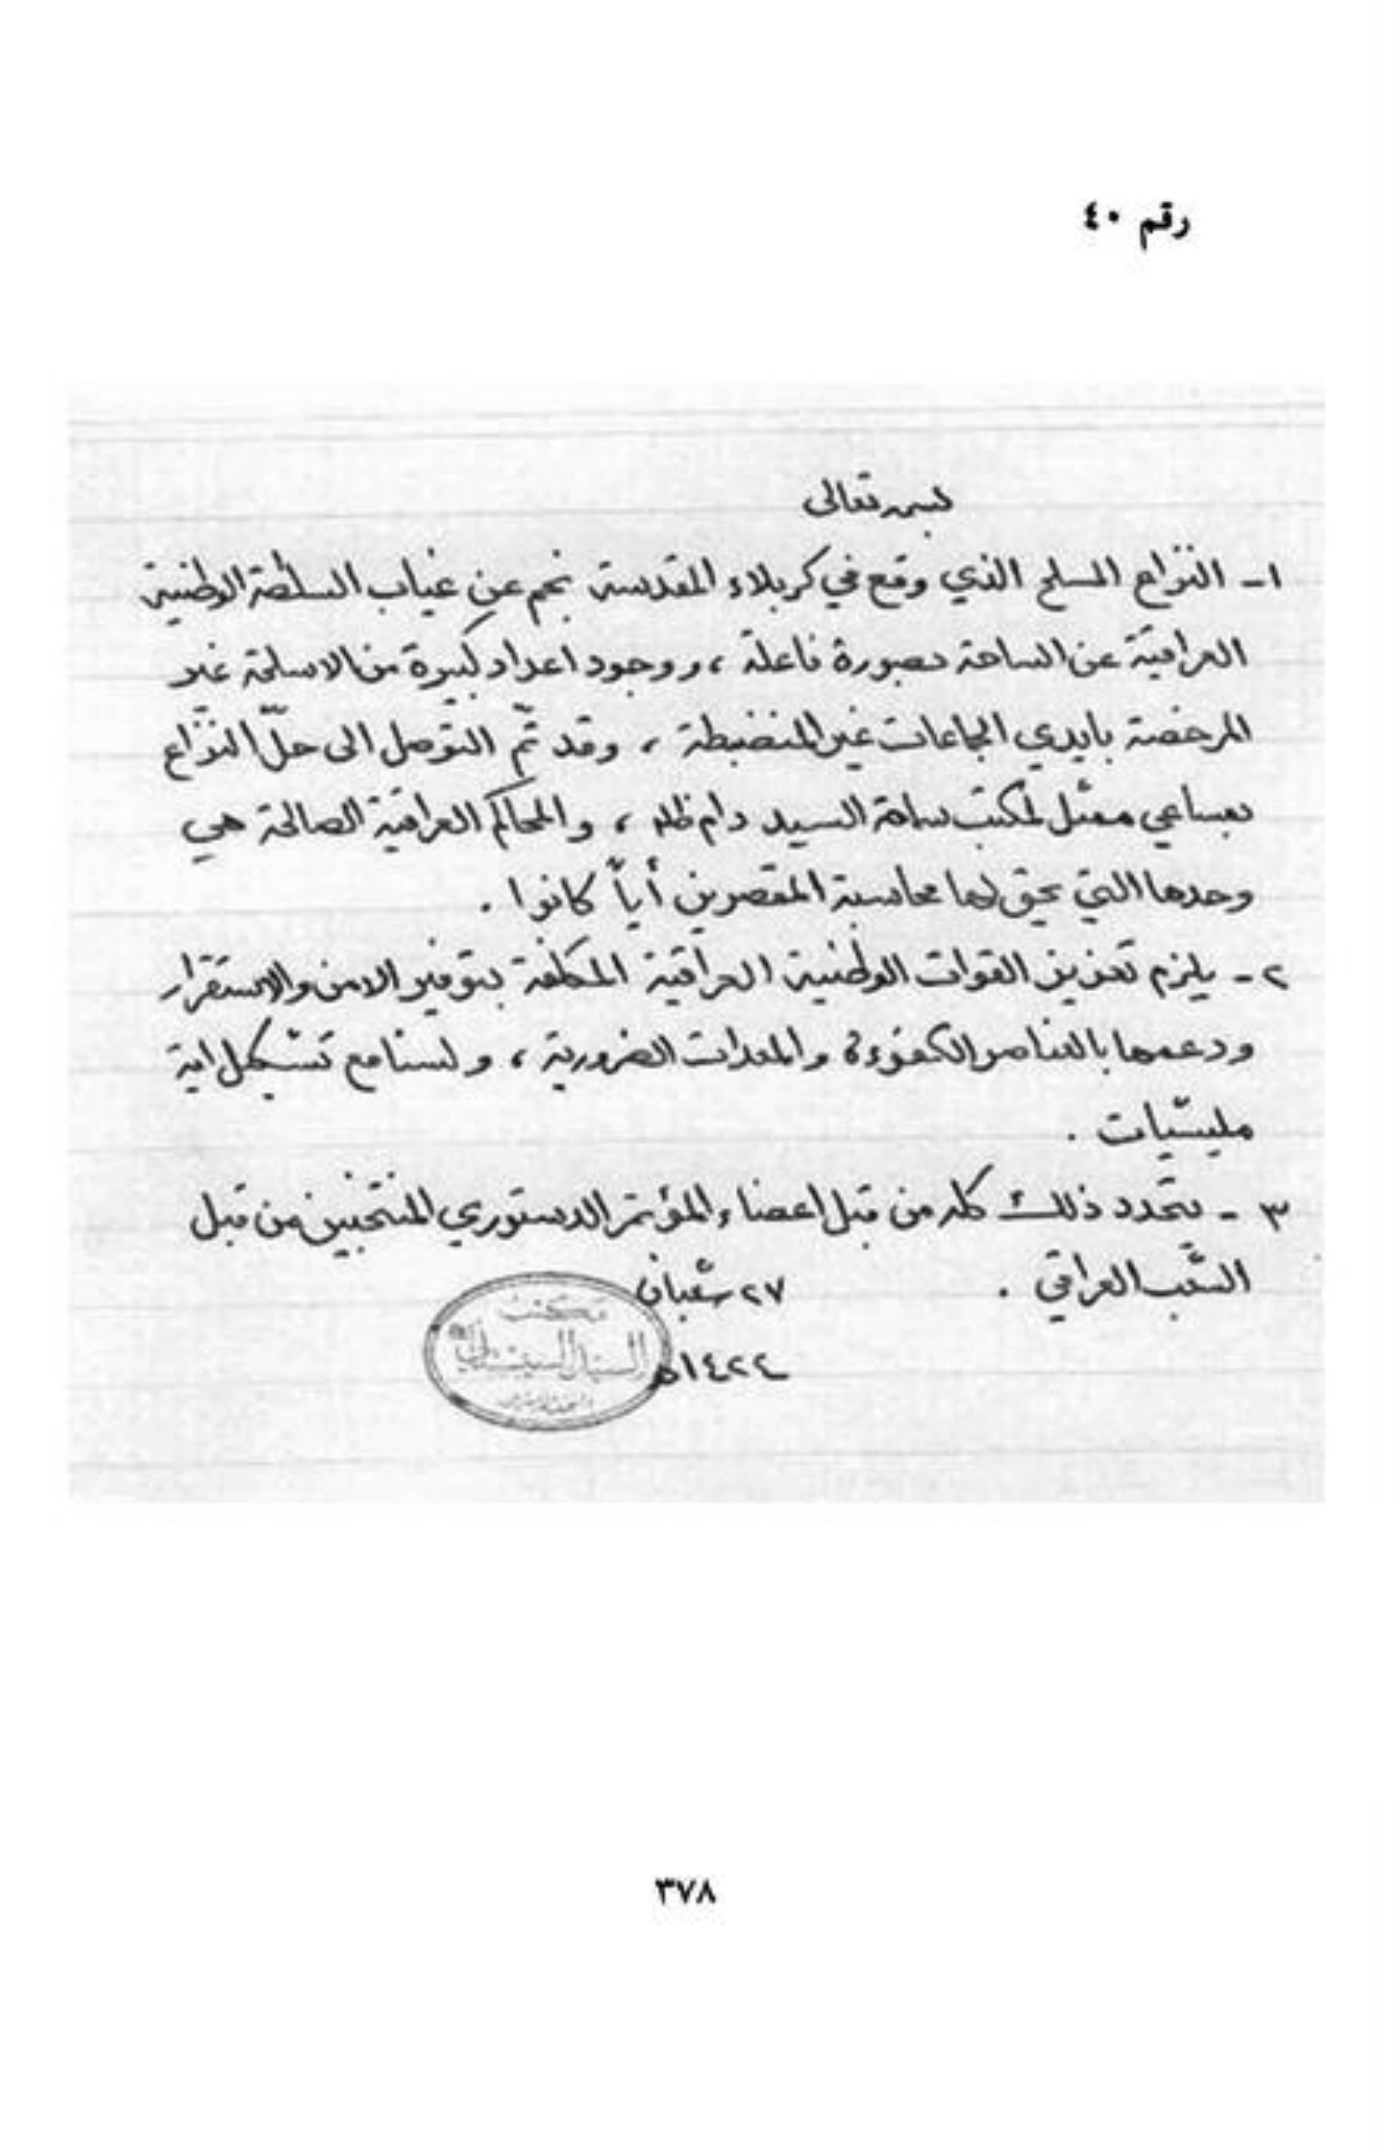 رقم ٤٠
بسمه تعالى
١- النزاع المسلح الذي وقع في كربلاء المقدسة نجم عن غياب السلطة الوطنية
العراقية عن الساحة بصورة فاعلة ، ووجود اعداد كبيرة من الاسلحة غير
المرخصة بايدي الجماعات غير المنضبطة ، وقد تمّ التوصل الى حلّ النزاع
بمساعي ممثل لمكتب سماحة السيد دام ظله ، والمحاكم العراقية الصالحة هي
وحدها التي يحق لها محاسبة المقصرين أياً كانوا .
٢- يلزم تعزيز القوات الوطنية العراقية المكلفة بتوفير الامن والاستقرار
ودعمها بالعناصر الكفوءة والمعدات الضرورية ، ولسنا مع تشكيل اية
مليشيات .
٣- يتحدد ذلك كله من قبل اعضاء المؤتمر الدستوري المنتخبين من قبل
الشعب العراقي .
٢٧ شعبان
١٤٢٤ه
مكتب
السيد السيستاني
٣٧٨